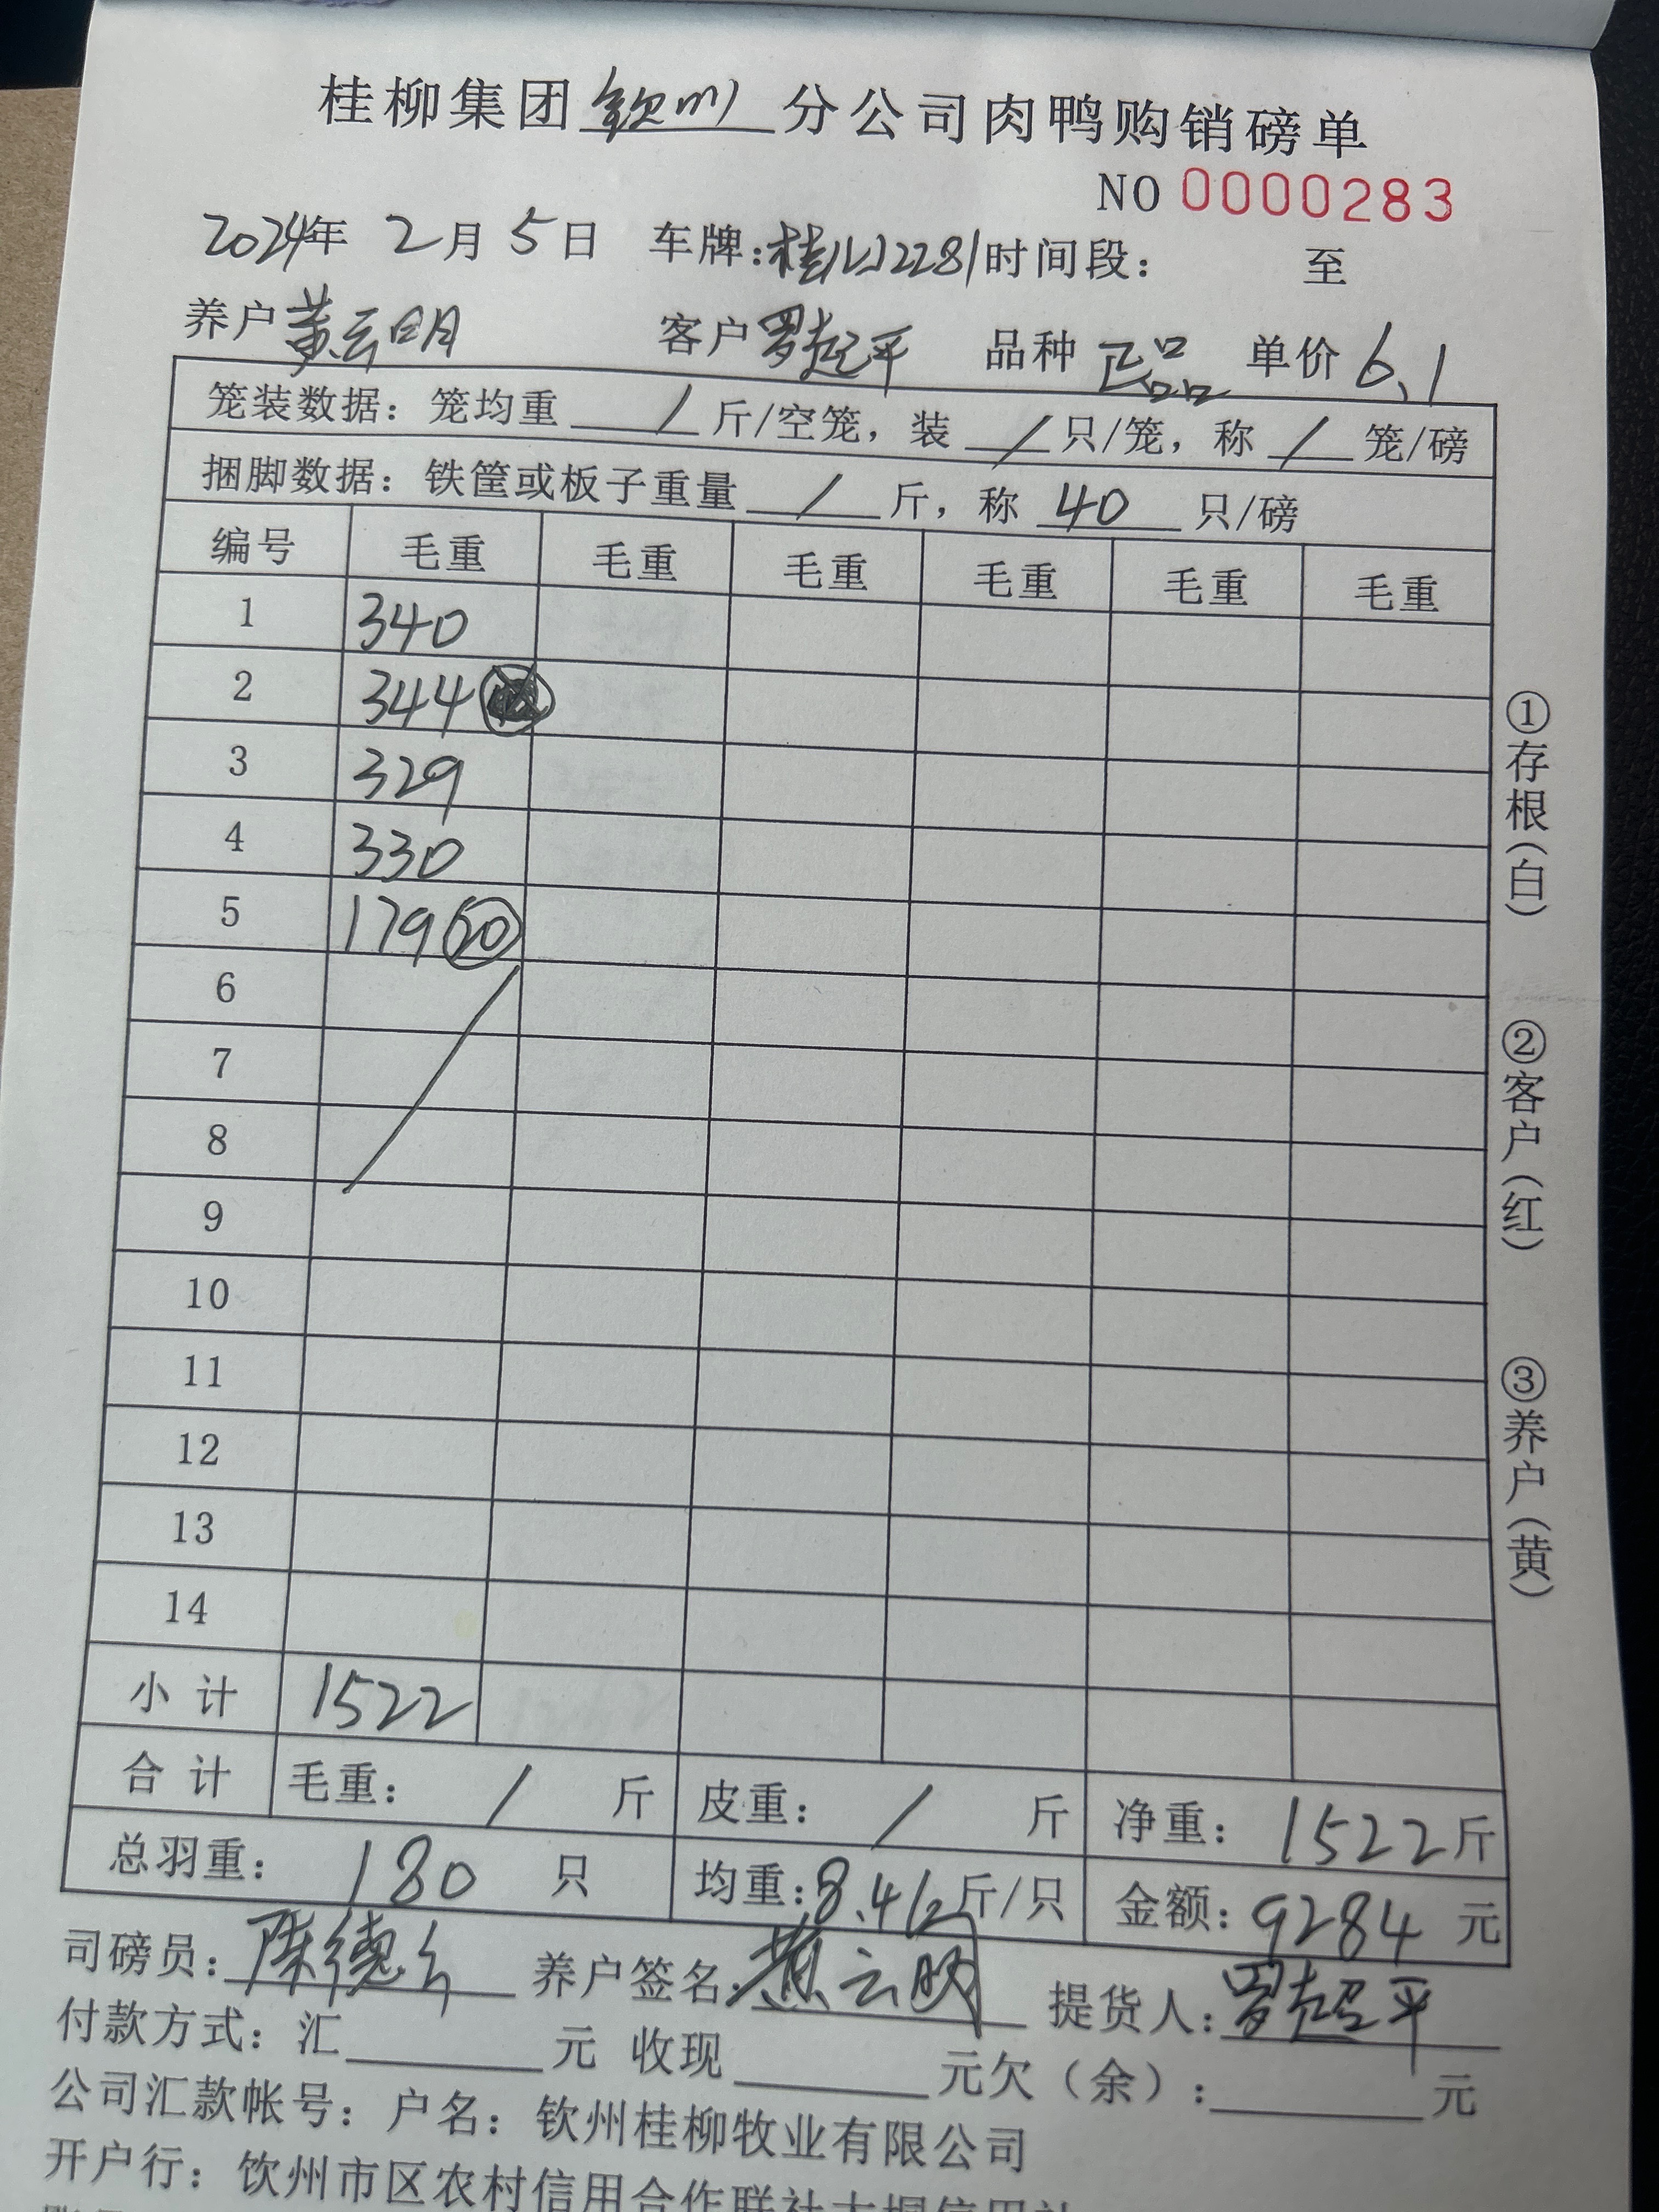 桂柳集团钦州分公司肉鸭购销磅单
NO 0000283
2024年 2月 5日 车牌:桂 2281 时间段: 至
养户 黄云明 客户 罗超平 品种 正品 单价 6.1
笼装数据: 笼均重 / 斤/空笼, 装 / 只/笼, 称 / 笼/磅
捆脚数据: 铁筐或板子重量 / 斤, 称 40 只/磅
编号 毛重 毛重 毛重 毛重 毛重 毛重
1 340
2 344
3 329
4 330
5 179 20
6
7
8
9
10
11
12
13
14
小计 1522
合计 毛重: / 斤 皮重: / 斤 净重: 1522斤
总羽重: 180 只 均重: 8.4 斤/只 金额: 9284 元
司磅员: 陈德 养户签名: 黄云明 提货人: 罗超平
付款方式: 汇 元 收现 元欠(余): 元
公司汇款帐号: 户名: 钦州桂柳牧业有限公司
开户行: 钦州市区农村信用合作联社
①存根(白)
②客户(红)
③养户(黄)